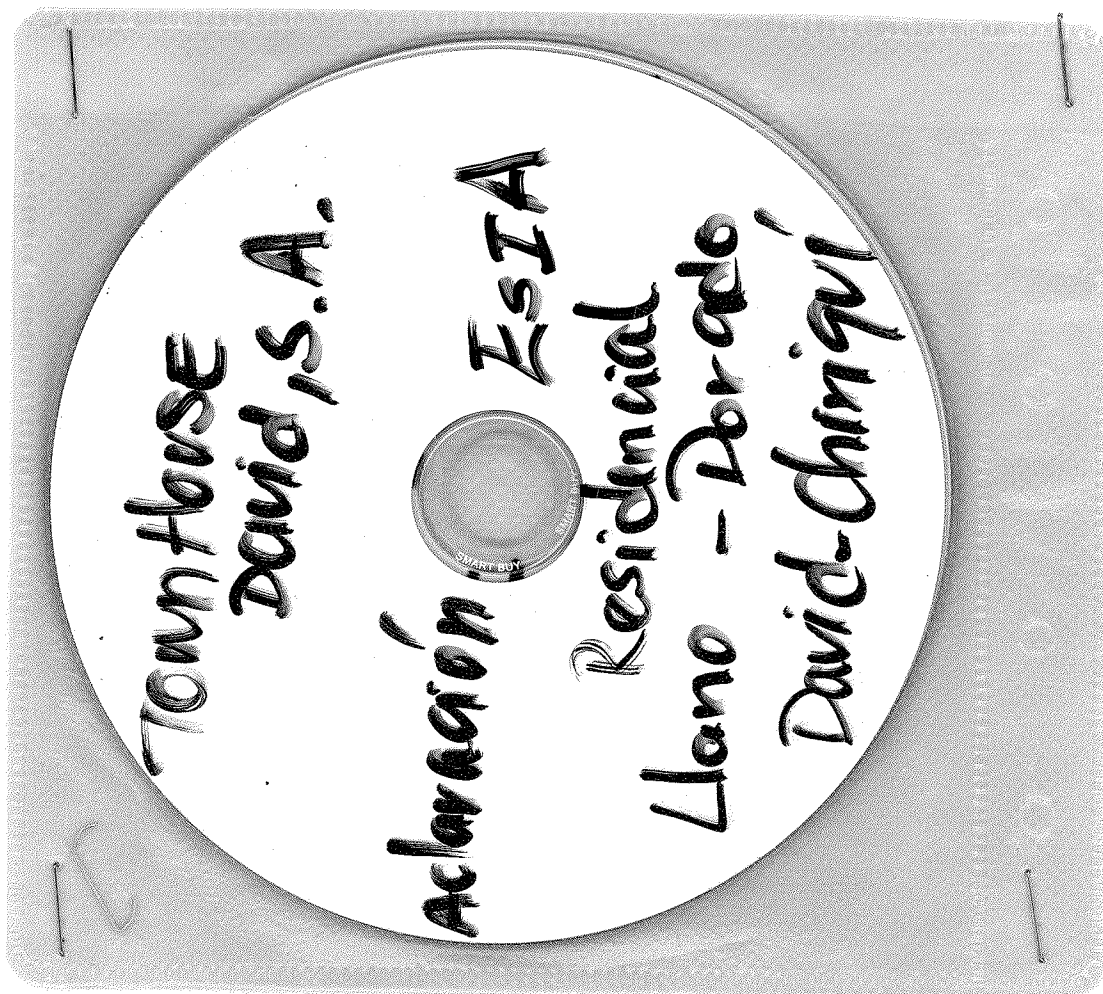 Town House
David, S.A.
Aclaración EsIA
Residencial
Llano - Dorado
David-Chiriquí
SMART BUY